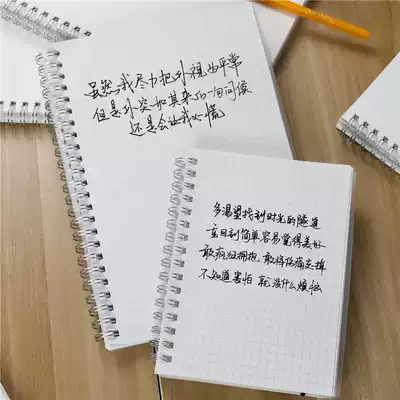 虽然我尽力把你视为平常
但是你突如其来的一句问候
还是会让我心慌
多渴望找到时光的隧道
重回到简单容易觉得美好
敢疯狂拥抱 敢将伤痛丢掉
不知道害怕 就没什么烦恼